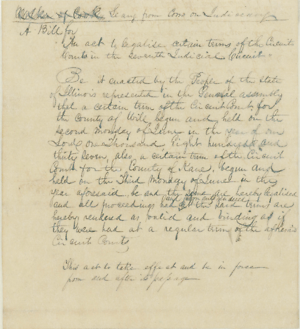 A Bill for
An act to legalise certain terms of the Circuit
Courts in the Seventh Judicial Circuit
Be it enacted by the People of the State
of Illinois represented in the General Assembly
that a certain term of the Circuit Court for
the County of Will begun and held on the
second Monday of in the year of our
Lord one thousand eight hundred and
thirty seven, also a certain term of the Circuit
Court for the County of begun and
held on the Third Monday of in the
year aforesaid be and the same are hereby legalised
and all proceedings had at the said terms are
hereby rendered as valid and binding as if
they were had at a regular term of the aforesaid
Circuit Courts
This act to take effect and be in force
from and after its passage